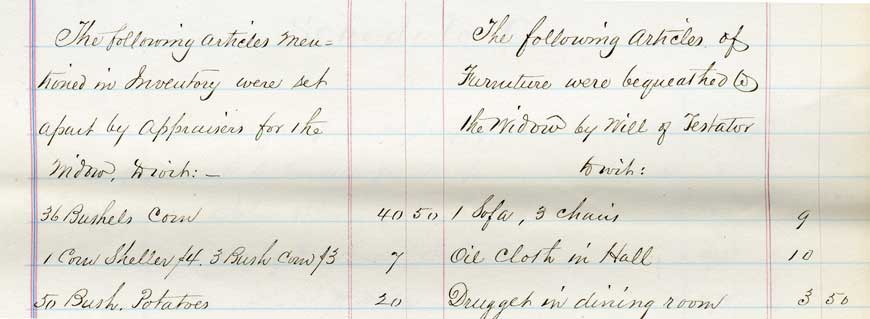 The following articles men=
tioned in Inventory were set
apart by Appraisers for the
Widow, towit:—
36 Bushels Corn 40 50
1 Corn Sheller $4. 3 Bush Corn $3 7
50 Bush. Potatoes 20
The following articles of
Furniture were bequeathed to
the Widow by Will of Testator
towit:
1 Sofa, 3 chairs 9
Oil Cloth in Hall 10
Drugget in dining room 3 50